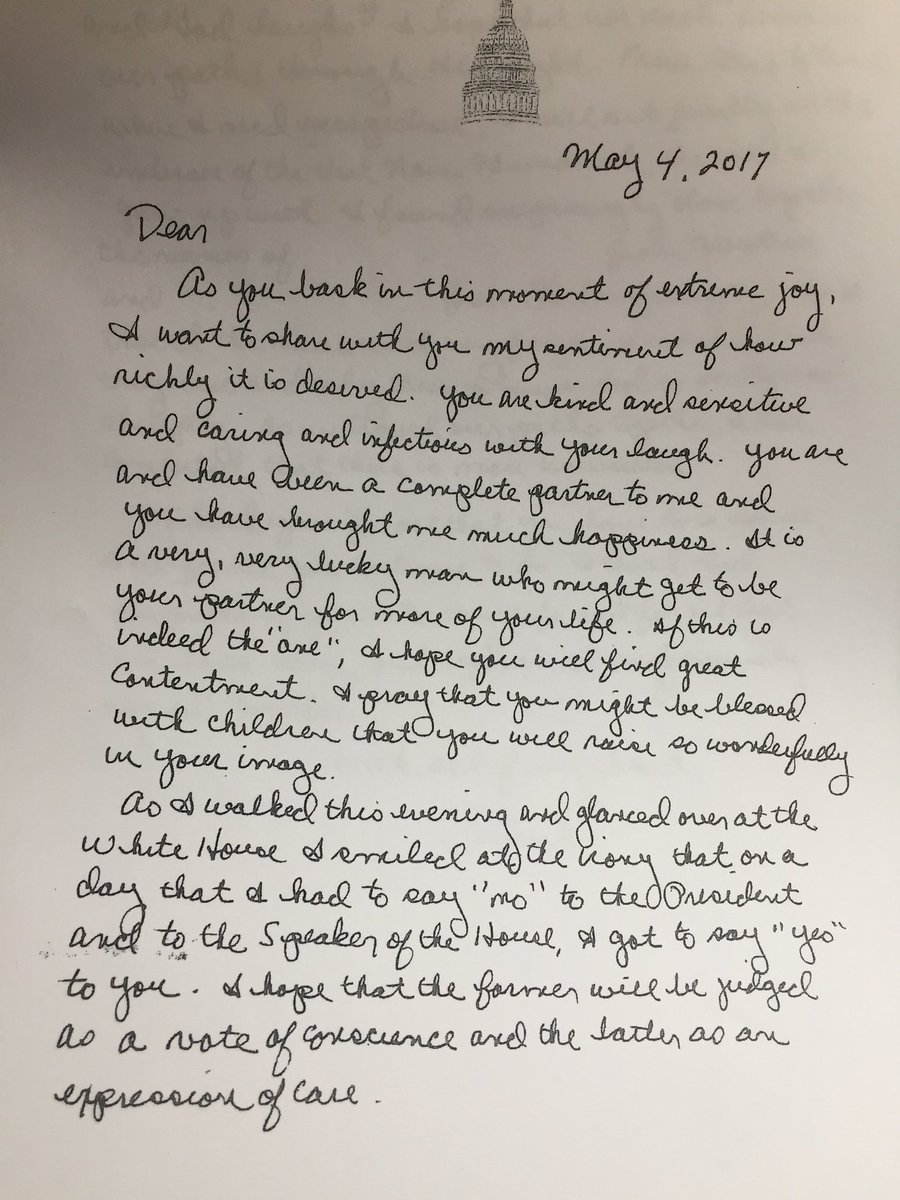 May 4, 2017
Dear
As you bask in this moment of extreme joy,
I want to share with you my sentiment of how
richly it is deserved. You are kind and sensitive
and caring and infectious with your laugh. You are
and have been a complete partner to me and
you have brought me much happiness. It is
a very, very lucky man who might get to be
your partner for more of your life. If this is
indeed the "one", I hope you will find great
contentment. I pray that you might be blessed
with children that you will raise so wonderfully
in your image.
As I walked this evening and glanced over at the
White House I smiled at the irony that on a
day that I had to say "no" to the President
and to the Speaker of the House, I got to say "yes"
to you. I hope that the former will be judged
as a vote of conscience and the latter as an
expression of care.